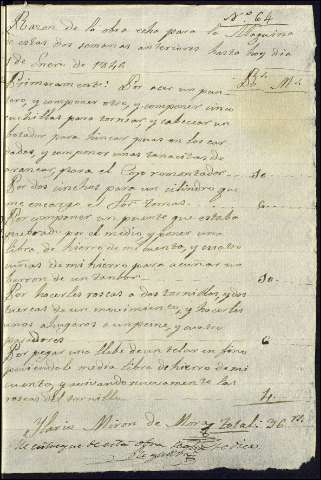 N.o 64
Razon de la obra echa para la Maquina
en estas dos semanas anteriores hasta hoy dia
1 de enero de 1842
Rs. Ms.
Primeramente: Por acer un pun
zon, y componer otro, y componer cinco
cuchillas para tornear, y cabecear un
botador para hincar puas en los car
dados, y componer unas tenacitas de
arancar, para el Copo romentador 10
Por dos cinchos para un cilindro que
me encargo el Sor. tomas 6
Por componer un puente que estaba
quebrado por el medio, y poner una
libra de hierro de mi cuenta, y cuatro
cuñas de mi hierro para acuñar un
de un tanbor 10
Por hacerles roscas a dos tornillos, y dos
tuercas de un movimiento, y hacerles
unos a un peine, y cuatro
pasadores 6
Por pegar una llebe de un telar en fino
poniendole media libra de hierro de mi
cuenta, y aviando nuevamente las
roscas del tornillo 4
Ylario Miron de Mora total: 36 rs.
de estar obra